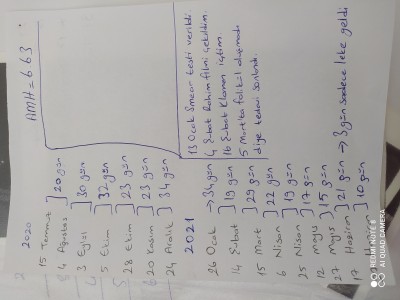 2020
15 Temmuz
] 20 gün
4 Ağustos
] 30 gün
3 Eylül
] 32 gün
5 Ekim
] 23 gün
28 Ekim
] 23 gün
20 Kasım
] 34 gün
24 Aralık
2021
26 Ocak → 34 gün
] 19 gün
14 Şubat
] 29 gün
15 Mart
] 22 gün
6 Nisan
] 19 gün
25 Nisan
] 17 gün
12 Mayıs
] 15 gün
27 Mayıs
] 21 gün → 3 gün sadece leke geldi
17 Haziran
] 10 gün
AMH = 6.63
13 Ocak Smear testi verildi.
4 Şubat Rahim filmi çekildim.
16 Şubat Klomen içtim.
5 Mart'ta folikül oluşmadı
diye tedavi sonlandı.
REDMI NOTE 8
AI QUAD CAMERA